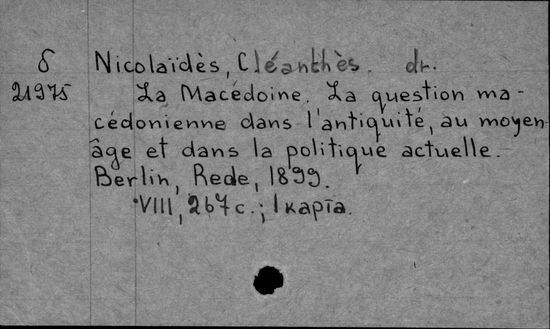 δ Nicolaïdès, Cléanthès. dr.
21975 La Macédoine. La question ma-
cédonienne dans l'antiquité, au moyen-
âge et dans la politique actuelle.
Berlin, Rede, 1899.
VIII, 267 с.; 1 карта.